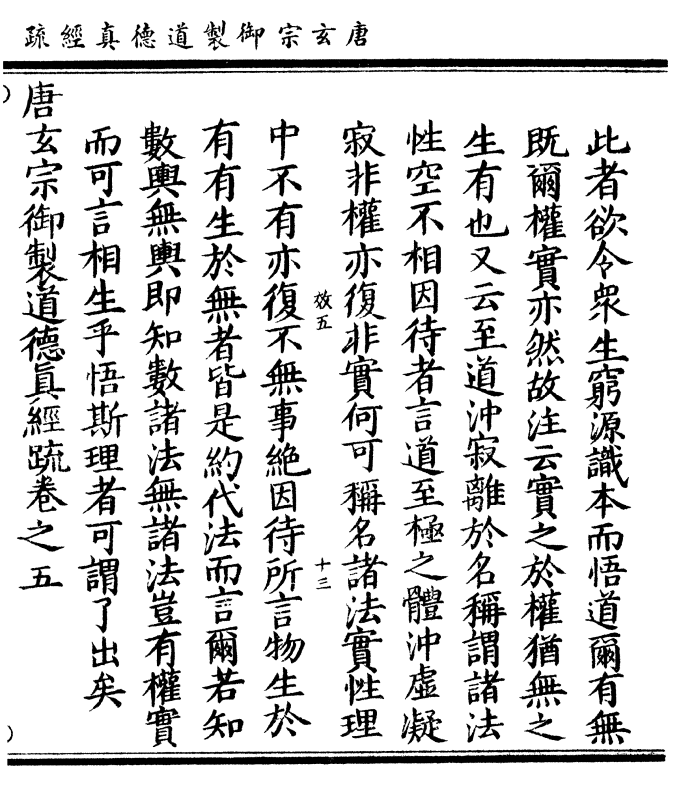 唐玄宗御製道德真經疏
此者欲令衆生窮源識本而悟道爾有無
既爾權實亦然故注云實之於權猶無之
生有也又云至道沖寂離於名稱謂諸法
性空不相因待者言道至極之體沖虛凝
寂非權亦復非實何可稱名諸法實性理
效五
十三
中不有亦復不無事絶因待所言物生於
有有生於無者皆是約代法而言爾若知
數輿無輿即知數諸法無諸法豈有權實
而可言相生乎悟斯理者可謂了出矣
唐玄宗御製道德眞經疏卷之五